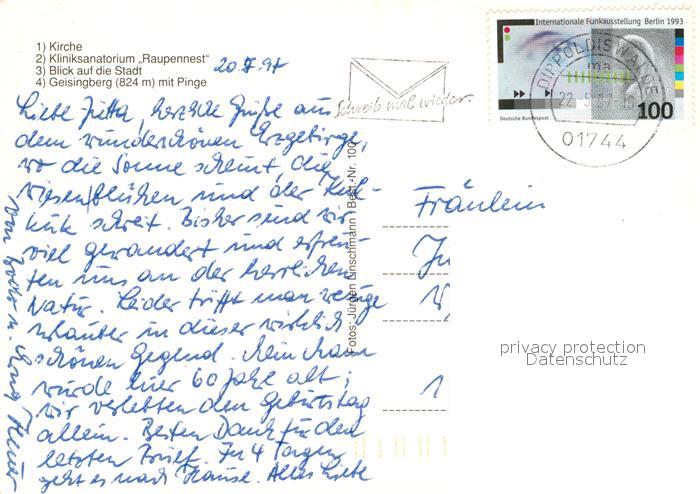 1) Kirche
2) Kliniksanatorium „Raupennest"
3) Blick auf die Stadt
4) Geisingberg (824 m) mit Pinge
Schreib mal wieder.
Internationale Funkausstellung Berlin 1993
Deutsche Bundespost
100
DIPPOLDISWALDE
01744
Liebe Jutta, herzliche Grüße aus
dem wunderschönen Erzgebirge,
wo die Sonne scheint, die
Wiesen blühen und der Kuk-
kuk schreit. Bisher sind wir
viel gewandert und erfreu-
ten uns an der herrlichen
Natur. Leider trifft man wenige
Urlauber in dieser wirklich
schönen Gegend. Mein Mann
wurde hier 60 Jahre alt,
wir verlebten den Geburtstag
allein. Besten Dank für den
letzten Brief. In 4 Tagen
geht es nach Hause. Alles Liebe
von
u.
Fotos: Jürgen Linschmann / Best.-Nr. 100
Fräulein
privacy protection
Datenschutz